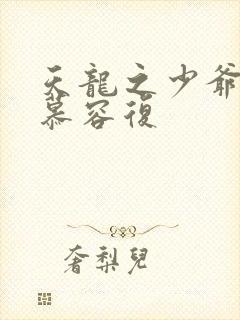 天龍之少爺
慕容復
奢梨兒